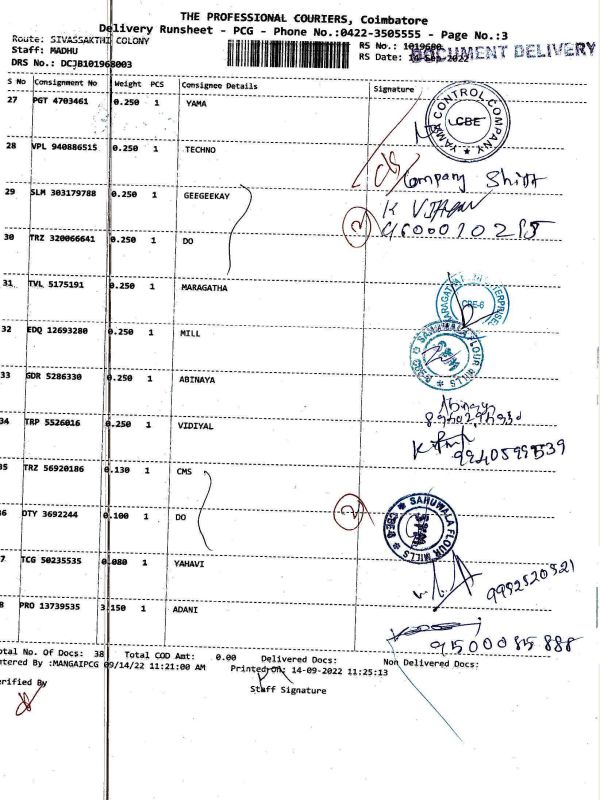 THE PROFESSIONAL COURIERS, Coimbatore
Delivery Runsheet - PCG - Phone No.:0422-3505555 - Page No.:3
Route: SIVASSAKTHI COLONY
Staff: MADHU
DRS No.: DCJB101968003
RS No.:
RS Date: 14-Sep-2022
DOCUMENT DELIVERY
S No Consignment No Weight PCS Consignee Details Signature
27 PGT 4703461 0.250 1 YAMA
YAMA CONTROL COMPANY CBE
28 VPL 940886515 0.250 1 TECHNO
Company
29 SLM 303179788 0.250 1 GEEGEEKAY
K
30 TRZ 320066641 0.250 1 DO
2
31 TVL 5175191 0.250 1 MARAGATHA
CBE-6
32 EDQ 12693280 0.250 1 MILL
SAHUWALA FLOUR MILLS
33 GDR 5286330 0.250 1 ABINAYA
Abinaya
34 TRP 5526016 0.250 1 VIDIYAL
9940599539
35 TRZ 56920186 0.130 1 CMS
36 DTY 3692244 0.100 1 DO
2
SAHUWALA FLOUR MILLS
7 TCG 50235535 0.080 1 YAHAVI
9992520521
8 PRO 13739535 3.150 1 ADANI
9500085888
otal No. Of Docs: 38 Total COD Amt: 0.00 Delivered Docs: Non Delivered Docs:
ntered By :MANGAIPCG 09/14/22 11:21:00 AM Printed On: 14-09-2022 11:25:13
erified By
Staff Signature